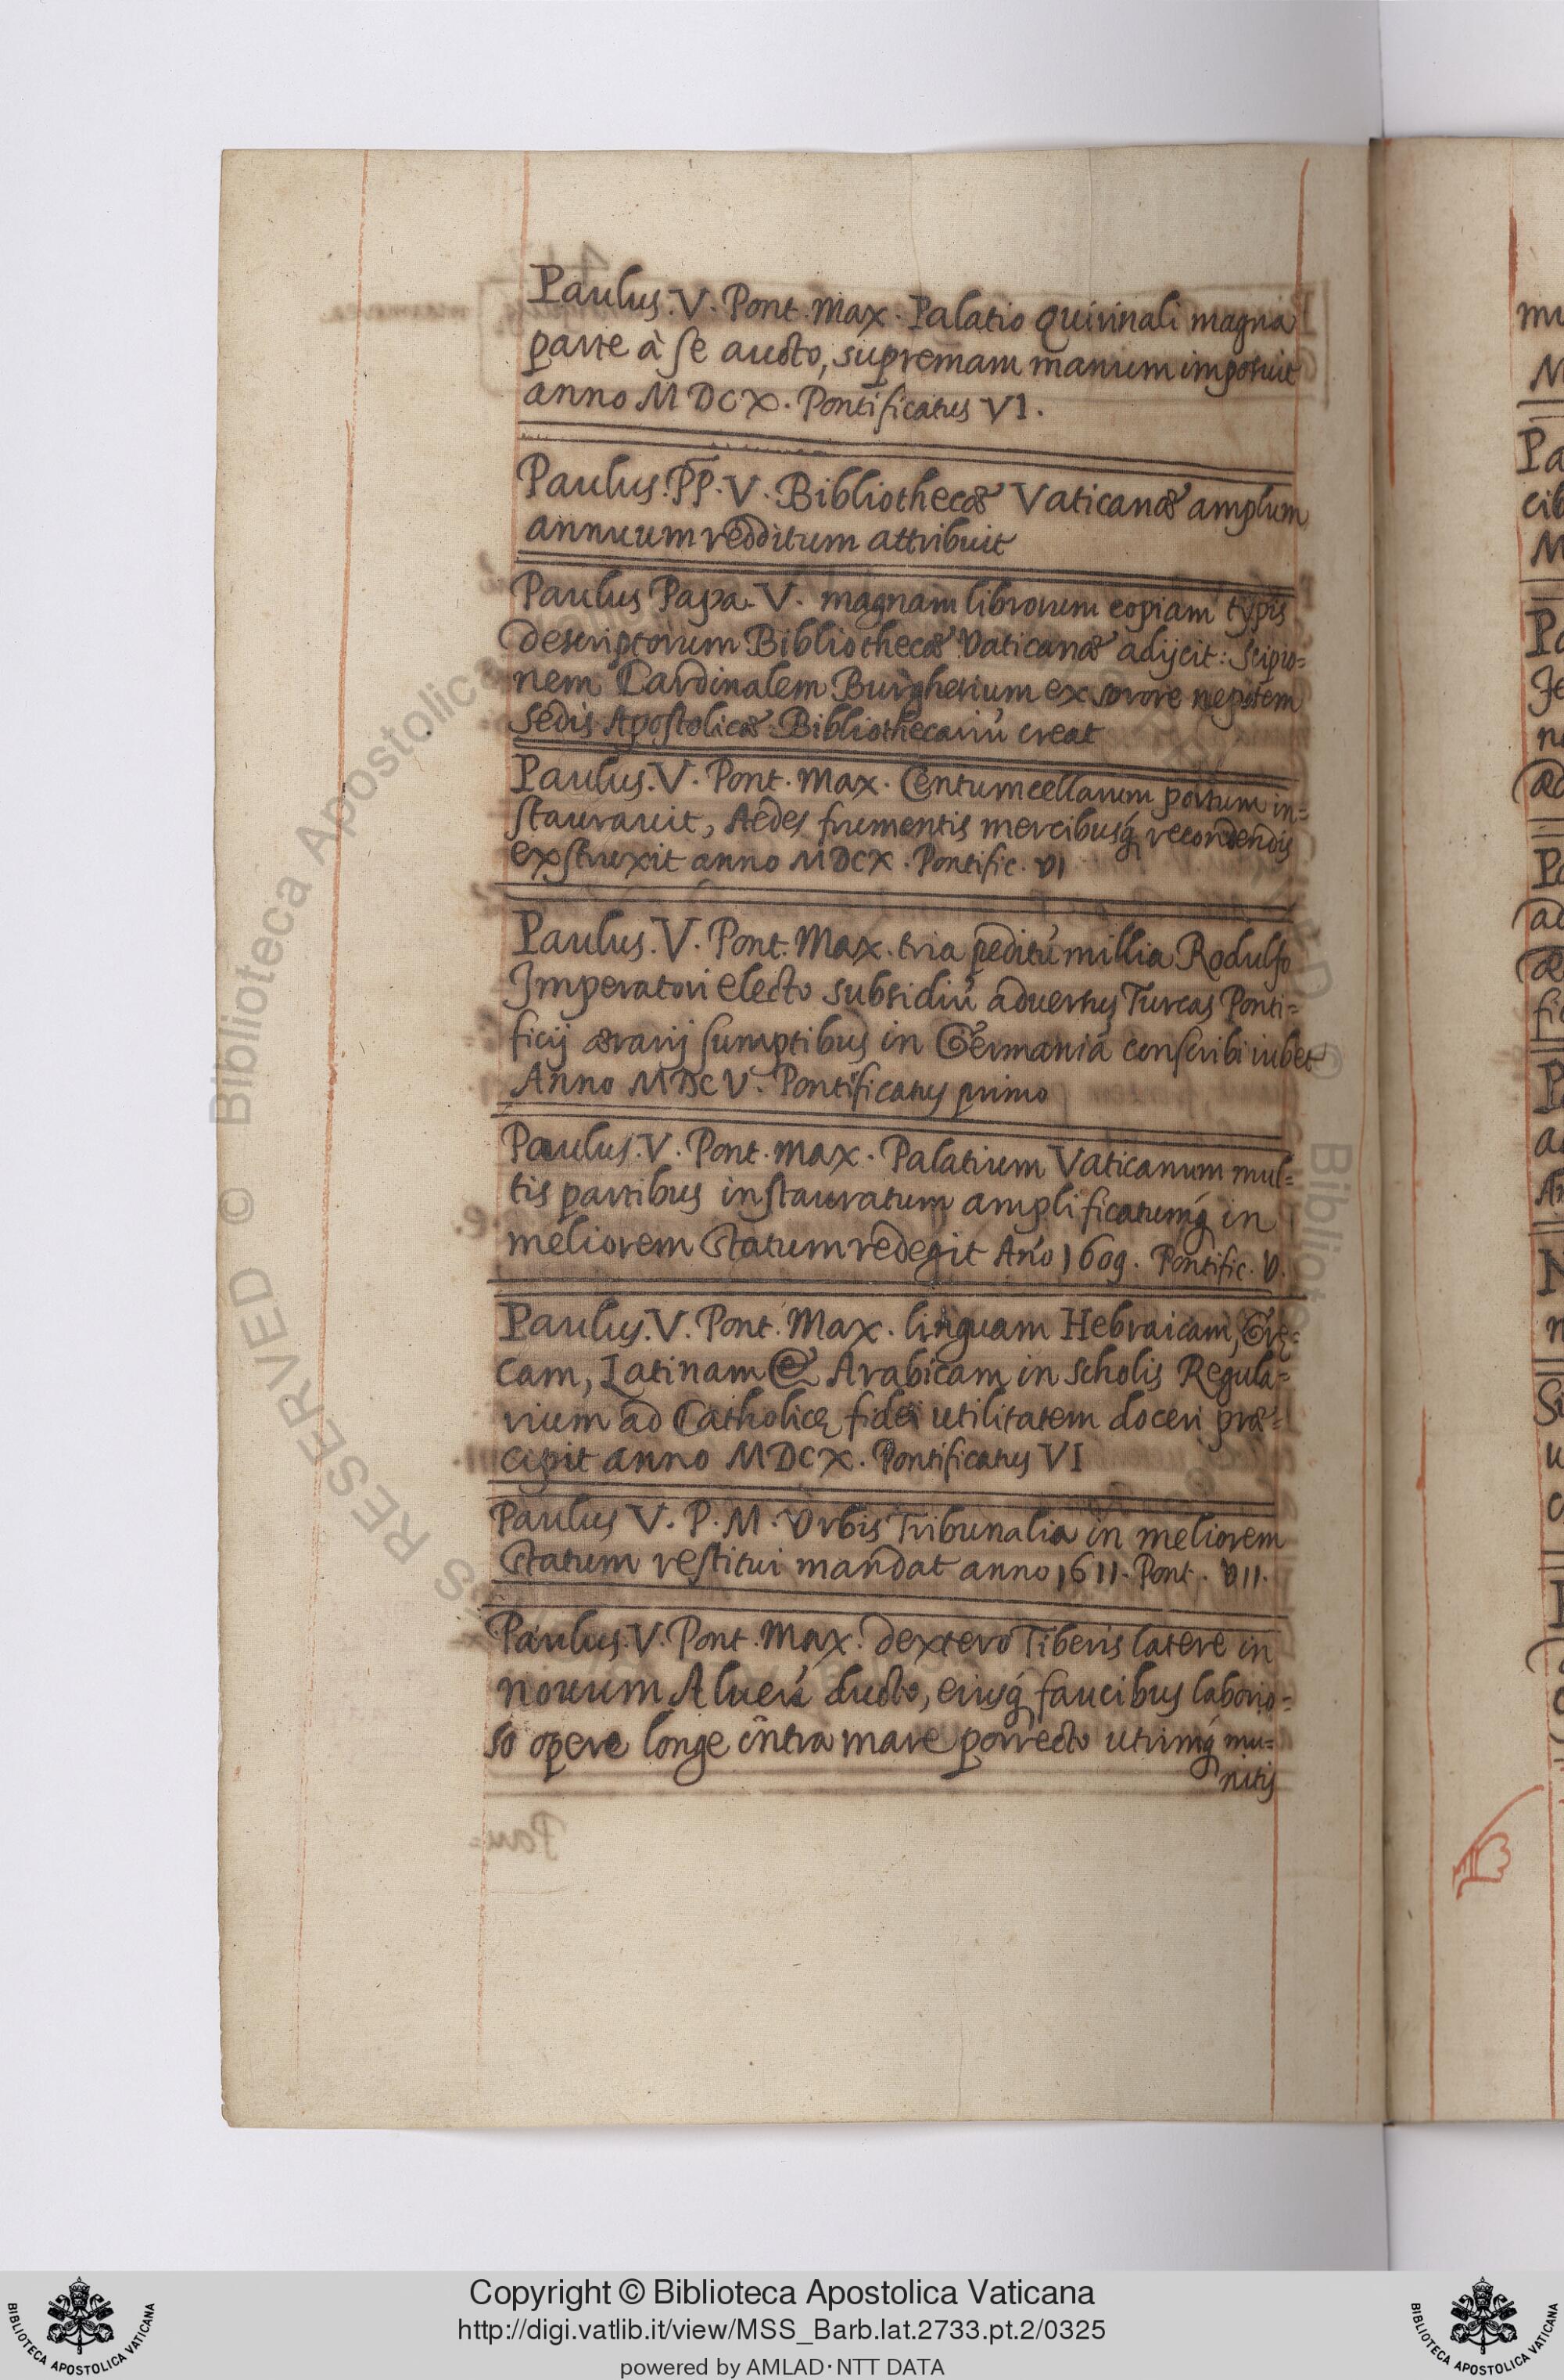 Paulus. V. Pont. Max. Palatio Quirinali magna
parte à se aucto, supremam manum imposuit
anno MDCX. Pontificatus VI.
Paulus. PP. V. Bibliothecæ Vaticanæ amplum
annuum redditum attribuit
Paulus Papa. V. magnam librorum copiam typis
descriptorum Bibliothecæ Vaticanæ adijcit: Scipio=
nem Cardinalem Burghesium ex sorore nepotem
Sedis Apostolicæ Bibliothecariũ creat
Paulus. V. Pont. Max. Centumcellarum portum in=
staurauit, Aedes frumentis mercibusq́ recondendis
exstruxit anno MDCX. Pontific. VI
Paulus. V. Pont. Max. tria peditũ millia Rodulfo
Imperatori electo subsidiũ aduersus Turcas Ponti=
ficij ærarij sumptibus in Germania conscribi iubet
Anno MDCV. Pontificatus primo
Paulus. V. Pont. Max. Palatium Vaticanum mul=
tis partibus instauratum amplificatumq́ in
meliorem statum redegit Año 1609. Pontific. V.
Paulus. V. Pont. Max. linguam Hebraicam, Grę=
cam, Latinam & Arabicam in scholis Regula=
rium ad Catholicę fidei utilitatem doceri præ=
cipit anno MDCX. Pontificatus VI
Paulus V. P. M. Vrbis Tribunalia in meliorem
statum restitui mandat anno 1611. Pont. VII.
Paulus. V. Pont. Max. dextero Tiberis latere in
nouum Alueũ ducto, eiusq́ faucibus laborio=
so opere longe intra mare porrecto utrimq́ mu=
nitis
mu
M
Pa
cib
M
Copyright © Biblioteca Apostolica Vaticana
http://digi.vatlib.it/view/MSS_Barb.lat.2733.pt.2/0325
powered by AMLAD·NTT DATA
BIBLIOTECA APOSTOLICA VATICANA
BIBLIOTECA APOSTOLICA VATICANA